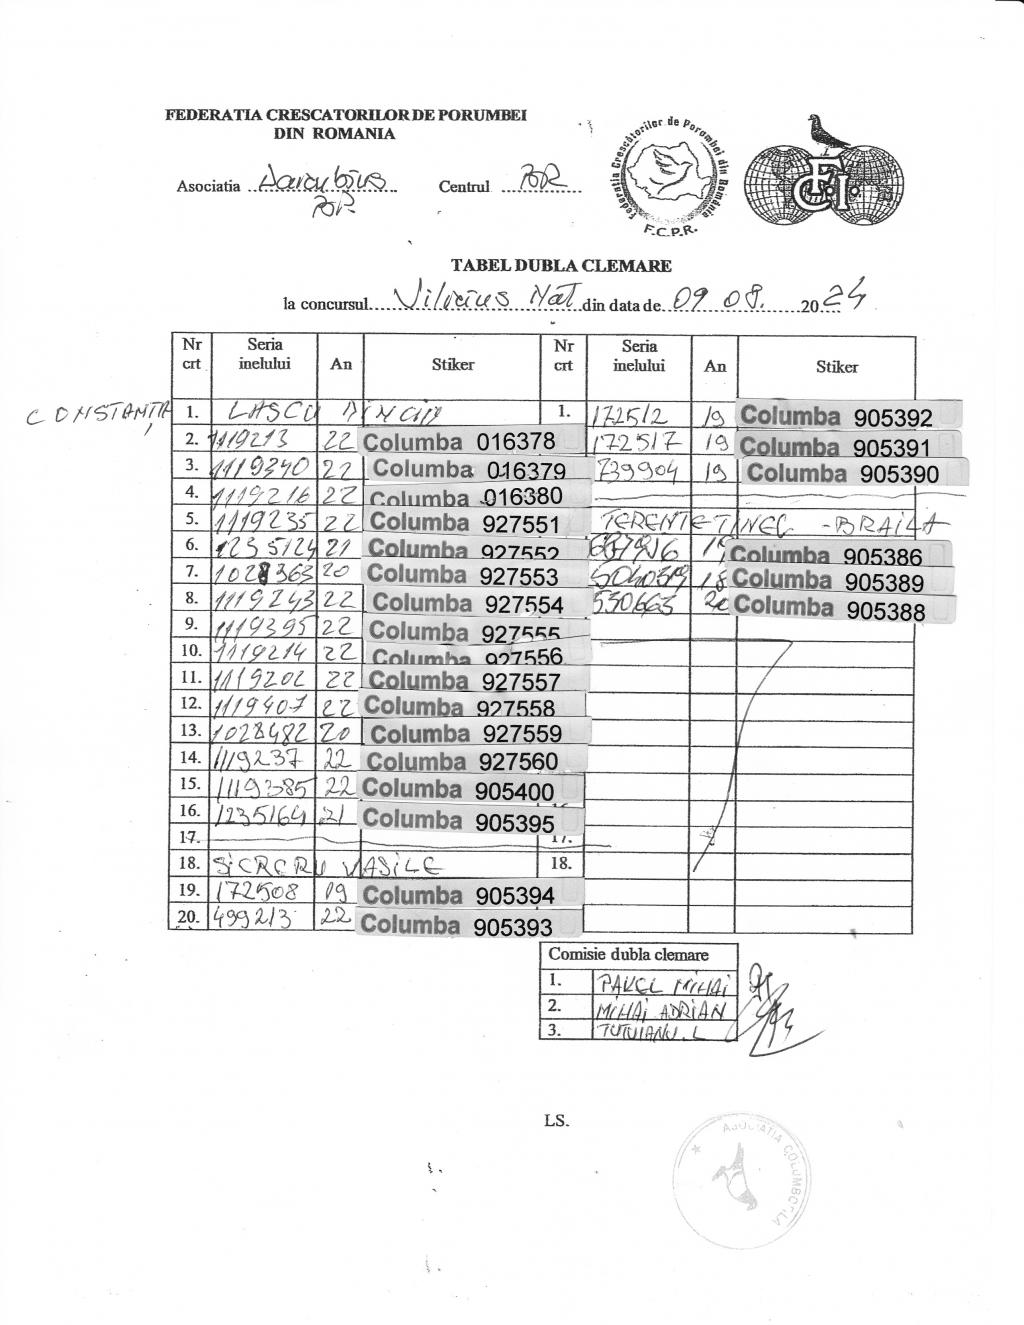 FEDERATIA CRESCATORILOR DE PORUMBEI
DIN ROMANIA
Federatia Crescătorilor de Porumbei din România
F.C.P.R.
F.C.I.
Asociatia Danubius Centrul
TABEL DUBLA CLEMARE
la concursul Vilicius Nat din data de 09 08. 2024
Nr crt Seria inelului An Stiker Nr crt Seria inelului An Stiker
CONSTANȚA 1. LASCU 1. 172512 19 Columba 905392
2. 1119213 22 Columba 016378 172517 19 Columba 905391
3. 1119340 22 Columba 016379 739904 19 Columba 905390
4. 1119216 22 Columba 016380
5. 1119235 22 Columba 927551 TERENTE TINEL - BRAILA
6. 1235124 21 Columba 927552 19 Columba 905386
7. 1028363 20 Columba 927553 18 Columba 905389
8. 1119243 22 Columba 927554 530663 Columba 905388
9. 1119395 22 Columba 927555
10. 1119214 22 Columba 927556
11. 1119202 22 Columba 927557
12. 1119407 22 Columba 927558
13. 1028482 20 Columba 927559
14. 1119237 22 Columba 927560
15. 1119385 22 Columba 905400
16. 1235164 21 Columba 905395
17. 17.
18. VASILE 18.
19. 172508 19 Columba 905394
20. 499213 22 Columba 905393
Comisie dubla clemare
1. PAVEL MIHAI
2. MIHAI ADRIAN
3. TUTUIANU.L
LS.
ASOCIATIA COLUMBOFILA